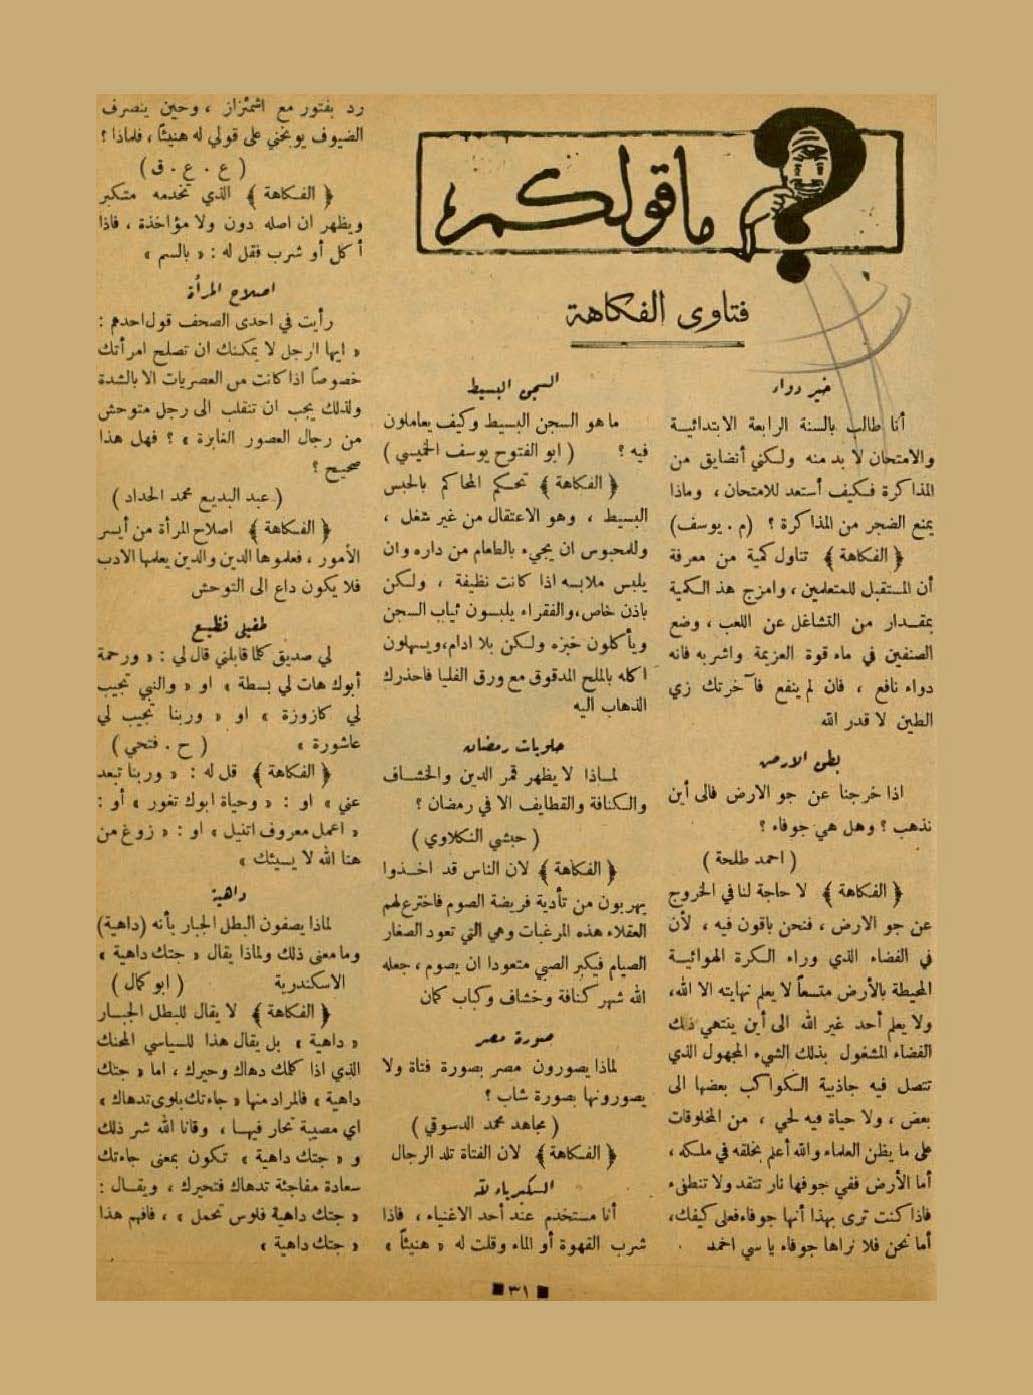 ما قولكم
فتاوى الفكاهة
خير دواء
أنا طالب بالسنة الرابعة الابتدائية
والامتحان لا بد منه ولكني أتضايق من
المذاكرة فكيف أستعد للامتحان ، وماذا
يمنع الضجر من المذاكرة ؟ (م . يوسف)
﴿ الفكاهة ﴾ تناول كمية من معرفة
أن المستقبل للمتعلمين ، وامزج هذ الكمية
بمقدار من التشاغل عن اللعب ، وضع
الصنفين في ماء قوة العزيمة واشربه فانه
دواء نافع ، فان لم ينفع فآخرتك زي
الطين لا قدر الله
بطن الارض
اذا خرجنا عن جو الارض فالى أين
نذهب ؟ وهل هي جوفاء ؟
( احمد طلحة )
﴿ الفكاهة ﴾ لا حاجة لنا في الخروج
عن جو الارض ، فنحن باقون فيه ، لأن
في الفضاء الذي وراء الكرة الهوائية
المحيطة بالأرض متسعاً لا يعلم نهايته الا الله،
ولا يعلم أحد غير الله الى أين ينتهي ذلك
الفضاء المشغول بذلك الشيء المجهول الذي
تتصل فيه جاذبية الكواكب بعضها الى
بعض ، ولا حياة فيه لحي ، من المخلوقات
على ما يظن العلماء والله أعلم بخلقه في ملكه ،
أما الأرض ففي جوفها نار تتقد ولا تنطفىء
فاذا كنت ترى بهذا أنها جوفاء فعلى كيفك،
أما نحن فلا نراها جوفاء يا سي احمد
السجن البسيط
ما هو السجن البسيط وكيف يعاملون
فيه ؟ ( ابو الفتوح يوسف الخميسي )
﴿ الفكاهة ﴾ تحكم المحاكم بالحبس
البسيط ، وهو الاعتقال من غير شغل ،
وللمحبوس ان يجيء بالطعام من داره وان
يلبس ملابسه اذا كانت نظيفة ، ولكن
باذن خاص،والفقراء يلبسون ثياب السجن
ويأكلون خبزه ولكن بلا ادام،ويسهلون
اكله بالملح المدقوق مع ورق الفليا فاحذرك
الذهاب اليه
حلويات رمضان
لماذا لا يظهر قمر الدين والخشاف
والكنافة والقطايف الا في رمضان ؟
( حبشي النكلاوي )
﴿ الفكاهة ﴾ لان الناس قد اخذوا
يهربون من تأدية فريضة الصوم فاخترع لهم
العقلاء هذه المرغبات وهي التي تعود الصغار
الصيام فيكبر الصبي متعودا ان يصوم ، جعله
الله شهر كنافة وخشاف وكباب كمان
صورة مصر
لماذا يصورون مصر بصورة فتاة ولا
يصورونها بصورة شاب ؟
( مجاهد محمد الدسوقي )
﴿ الفكاهة ﴾ لان الفتاة تلد الرجال
الكبرياء لله
أنا مستخدم عند أحد الاغنياء ، فاذا
شرب القهوة أو الماء وقلت له « هنيئاً »
رد بفتور مع اشمئزاز ، وحين ينصرف
الضيوف يوبخني على قولي له هنيئاً ، فلماذا ؟
( ع . ع . ق )
﴿ الفكاهة ﴾ الذي تخدمه متكبر
ويظهر ان اصله دون ولا مؤاخذة ، فاذا
أكل أو شرب فقل له : « بالسم »
اصلاح المرأة
رأيت في احدى الصحف قول احدهم :
« ايها الرجل لا يمكنك ان تصلح امرأتك
خصوصاً اذا كانت من العصريات الا بالشدة
ولذلك يجب ان تنقلب الى رجل متوحش
من رجال العصور الغابرة » ؟ فهل هذا
صحيح ؟
( عبد البديع محمد الحداد )
﴿ الفكاهة ﴾ اصلاح المرأة من أيسر
الأمور ، فعلموها الدين والدين يعلمها الادب
فلا يكون داع الى التوحش
طفيلي فظيع
لي صديق كلما قابلني قال لي : « ورحمة
أبوك هات لي بسطة » او « والنبي تجيب
لي كازوزة » او « وربنا تجيب لي
عاشورة » ( ح . فتحي )
﴿ الفكاهة ﴾ قل له : « وربنا تبعد
عني » او : « وحياة ابوك تغور » أو :
« اعمل معروف اتنيل » او : « زوغ من
هنا الله لا يسيئك »
داهية
لماذا يصفون البطل الجبار بأنه (داهية)
وما معنى ذلك ولماذا يقال « جتك داهية »
الاسكندرية ( ابو كمال )
﴿ الفكاهة ﴾ لا يقال للبطل الجبار
« داهية » بل يقال هذا للسياسي المحنك
الذي اذا كلك دهاك وحيرك ، اما « جتك
داهية » فالمراد منها « جاءتك بلوى تدهاك »
اي مصيبة تحار فيها ، وقانا الله شر ذلك
و « جتك داهية » تكون بمعنى جاءتك
سعادة مفاجئة تدهاك فتحيرك ، ويقال :
« جتك داهية فلوس تحمل » ، فافهم هذا
« جتك داهية »
٣١